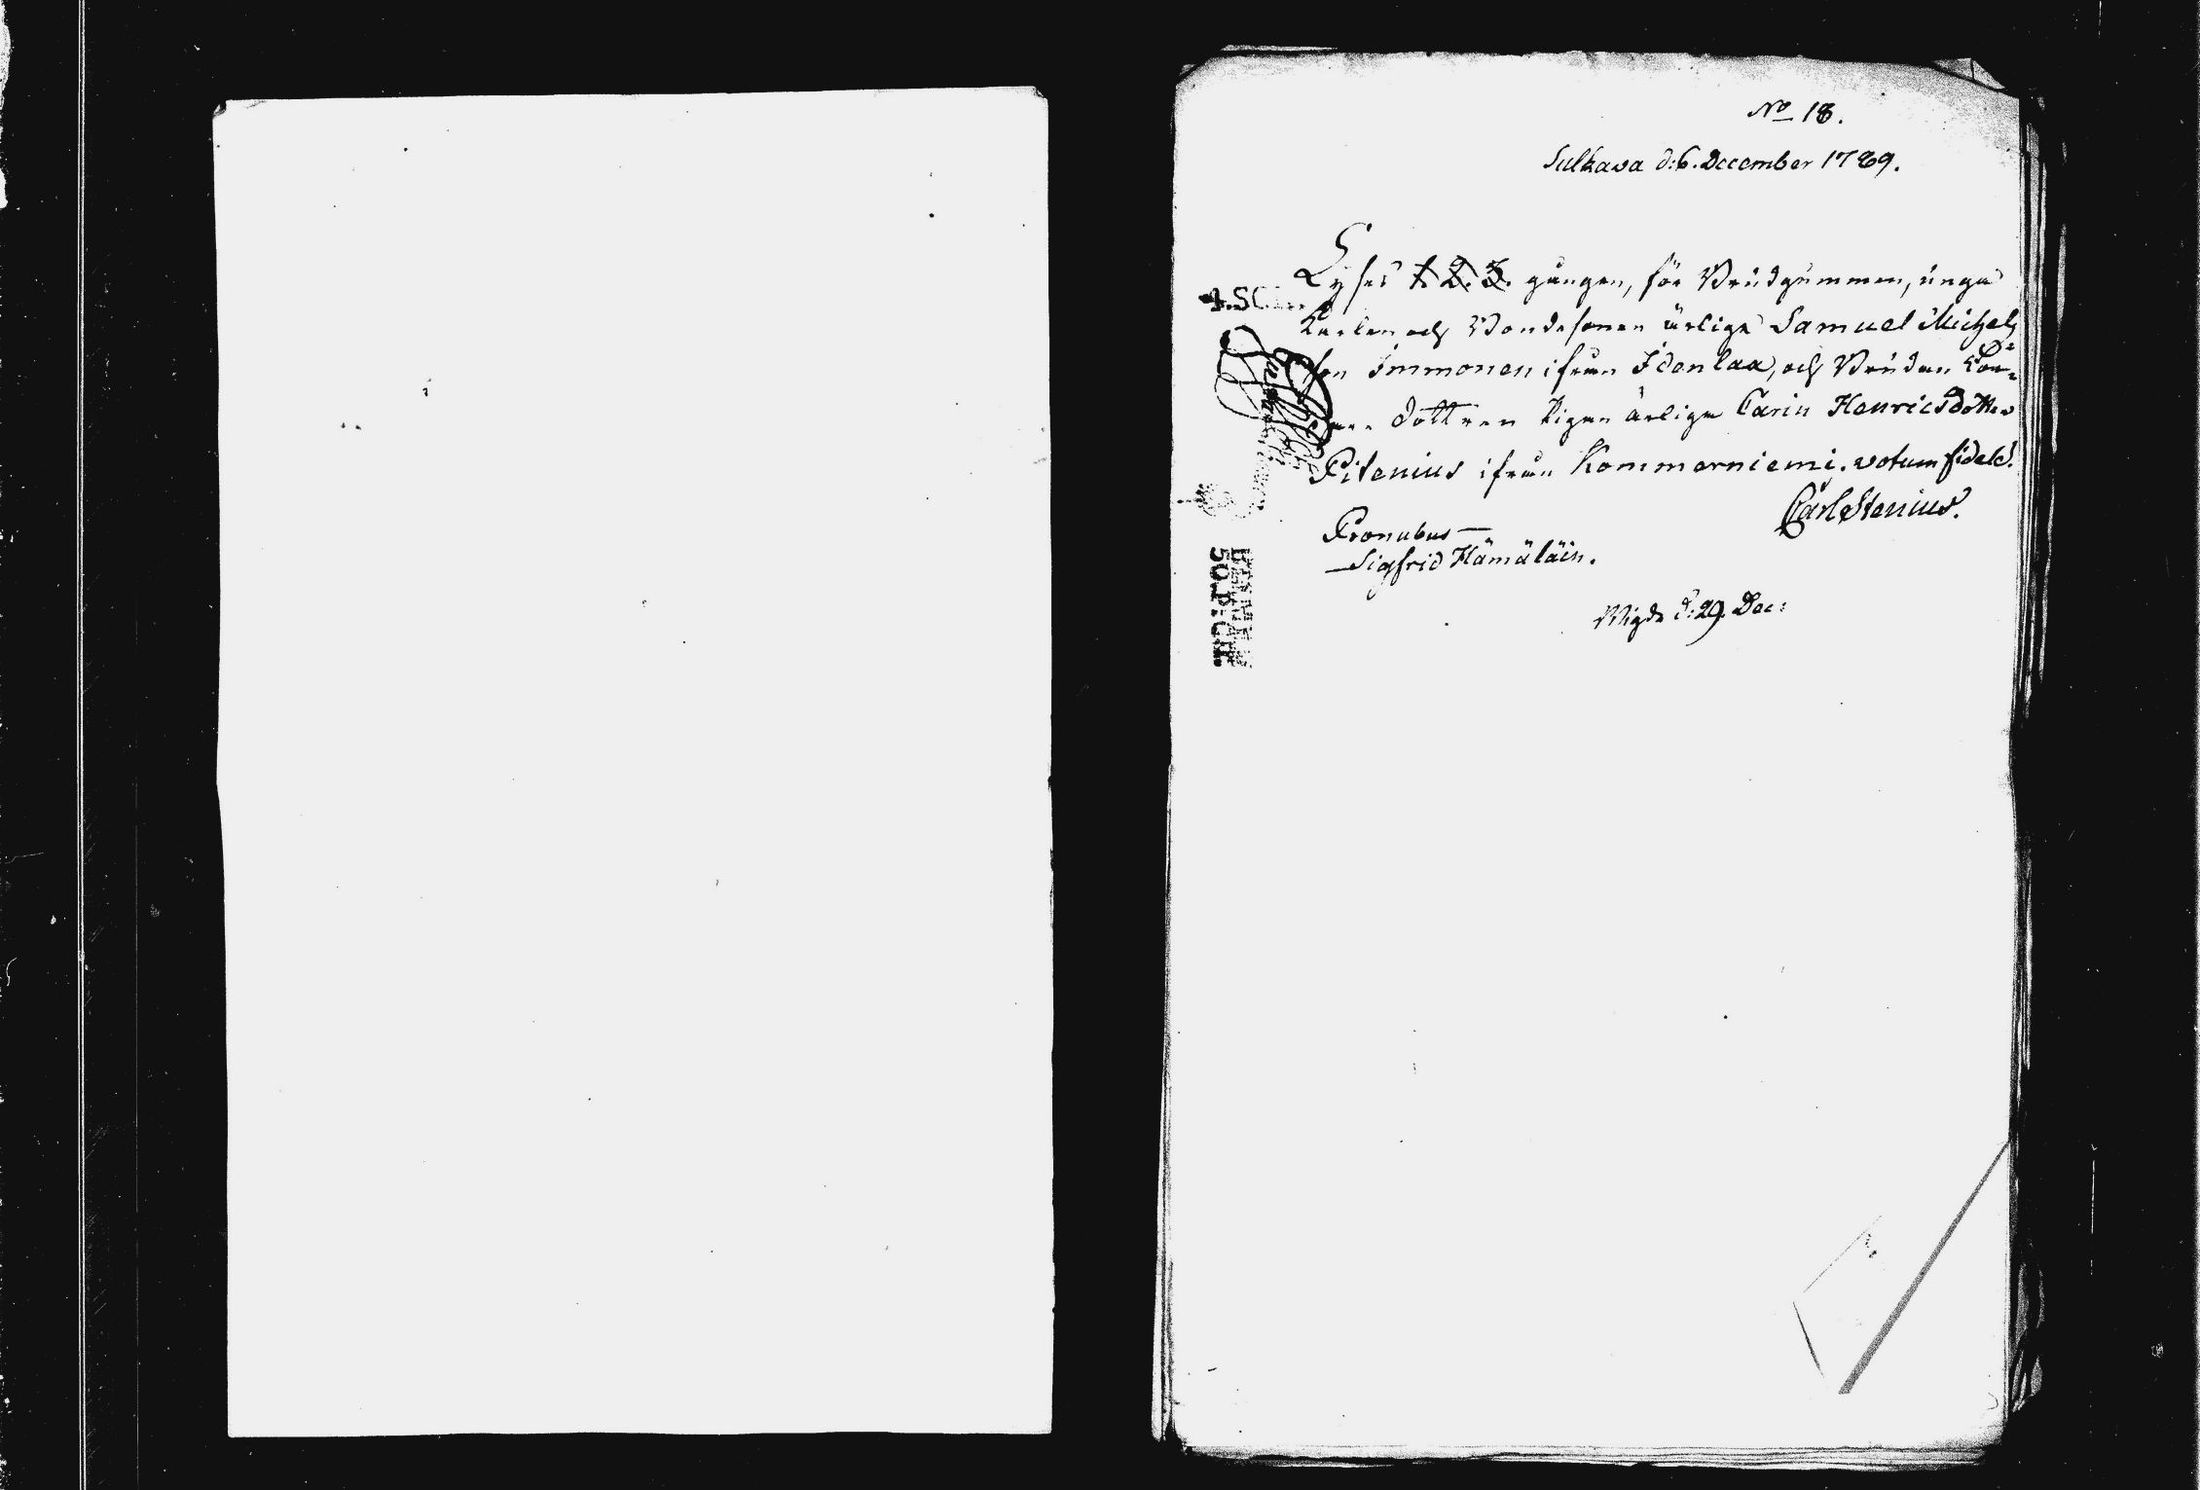 No 18.
Sulkava d: 6. December 1789.
Lyses 1. 2. 3. gången, för Brudgummen, unga
Karlen och Bondesonen ärlige Samuel Michels
son Immonen ifrån Idenlax, och Bruden Bon=
dottren Pigan ärliga Carin Henricsdotter
Pitenius ifrån Kommerniemi. votum fidele.
Carl Stenius.
Pronubus —
Sigfrid Hämäläin.
Wigde d: 29. Dec: